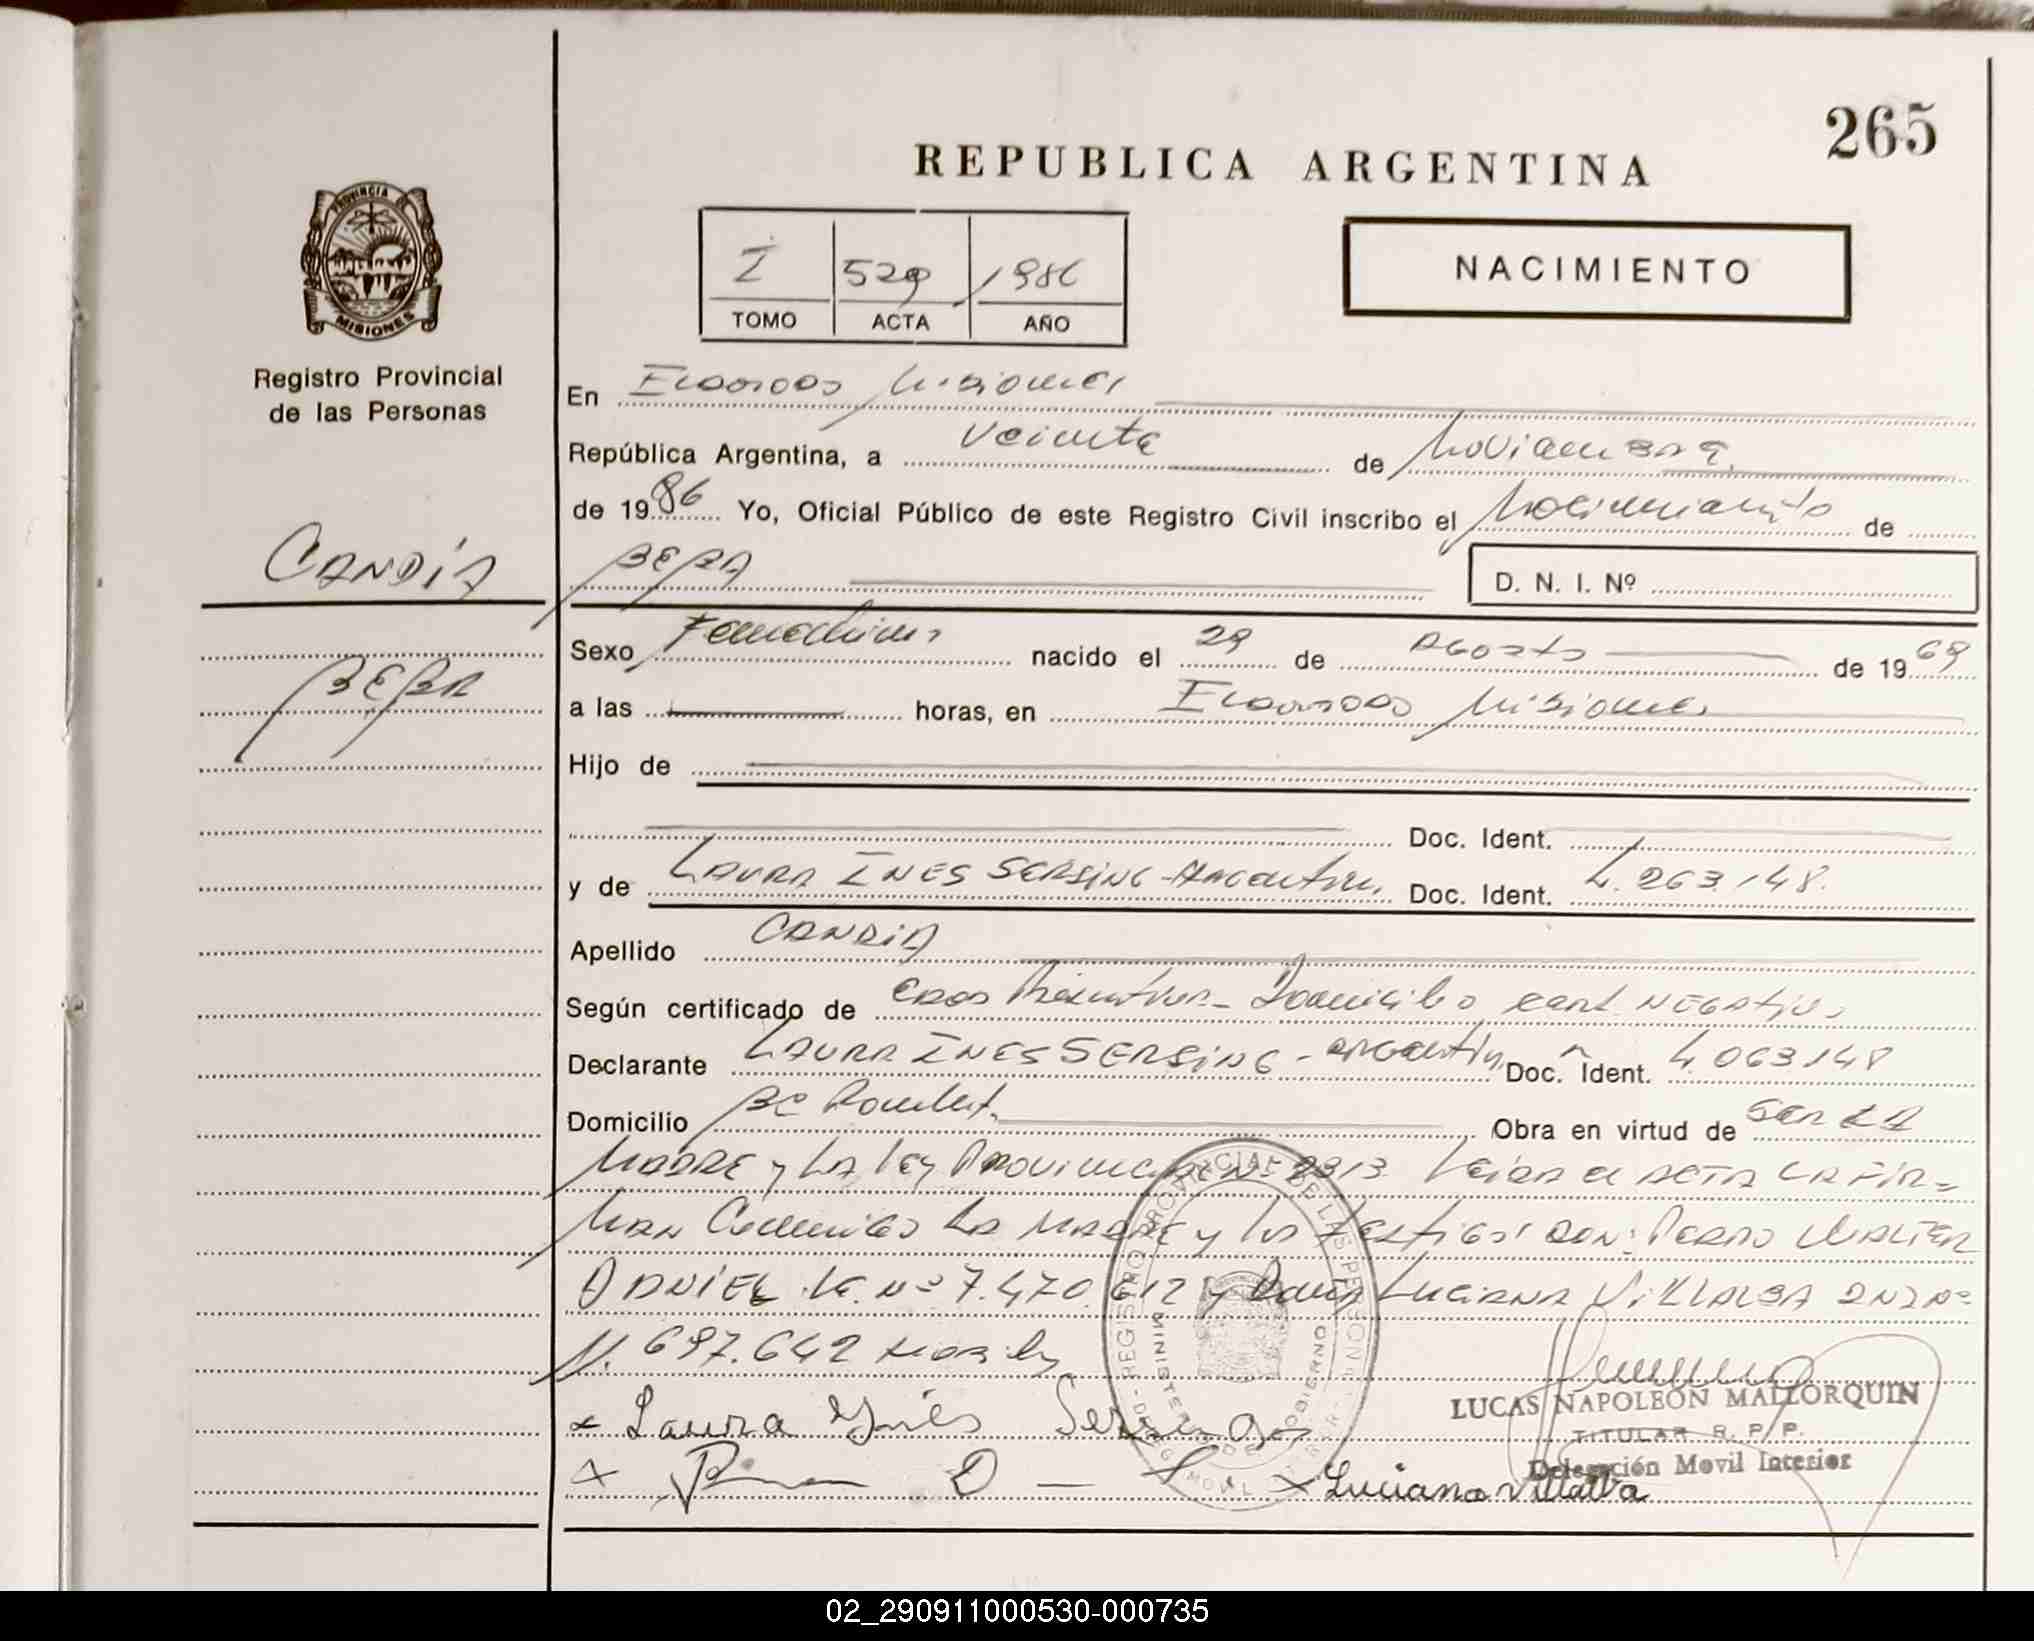 265
REPUBLICA ARGENTINA
PROVINCIA DE
MISIONES
Registro Provincial
de las Personas
I 529 1986
TOMO ACTA AÑO
NACIMIENTO
En Eldorado Misiones
República Argentina, a Veinte de Noviembre
de 1986 Yo, Oficial Público de este Registro Civil inscribo el Nacimiento de
D. N. I. Nº
CANDIA
Sexo Femenino nacido el 29 de Agosto de 1969
a las horas, en Eldorado Misiones
Hijo de
Doc. Ident.
y de LAURA INES SERSING - Argentina Doc. Ident. 4.263.148.
Apellido CANDIA
Según certificado de Domicilio NEGATIVO
Declarante LAURA INES SERSING - argentina Doc. Ident. 4.063148
Domicilio Obra en virtud de SER LA
MADRE y LA Ley Provincial Nº 2313 Leida el ACTA LA FIR=
MAN Conmigo LA MADRE y los testigos DON: PEDRO WALTER
DANIEL Nº 7.470.612 y LUCIANA VILLALBA DNI Nº
11.697.642
x Laura Ynés Sersing
x x Luciana Villalba
REGISTRO PROVINCIAL DE LAS PERSONAS
MINISTERIO DE GOBIERNO
LUCAS NAPOLEON MALLORQUIN
TITULAR R. P. P.
Delegación Movil Interior
02_290911000530-000735